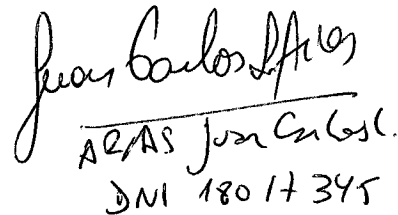 Juan Carlos L. Arias
ARIAS Juan Carlos L.
DNI 18017345